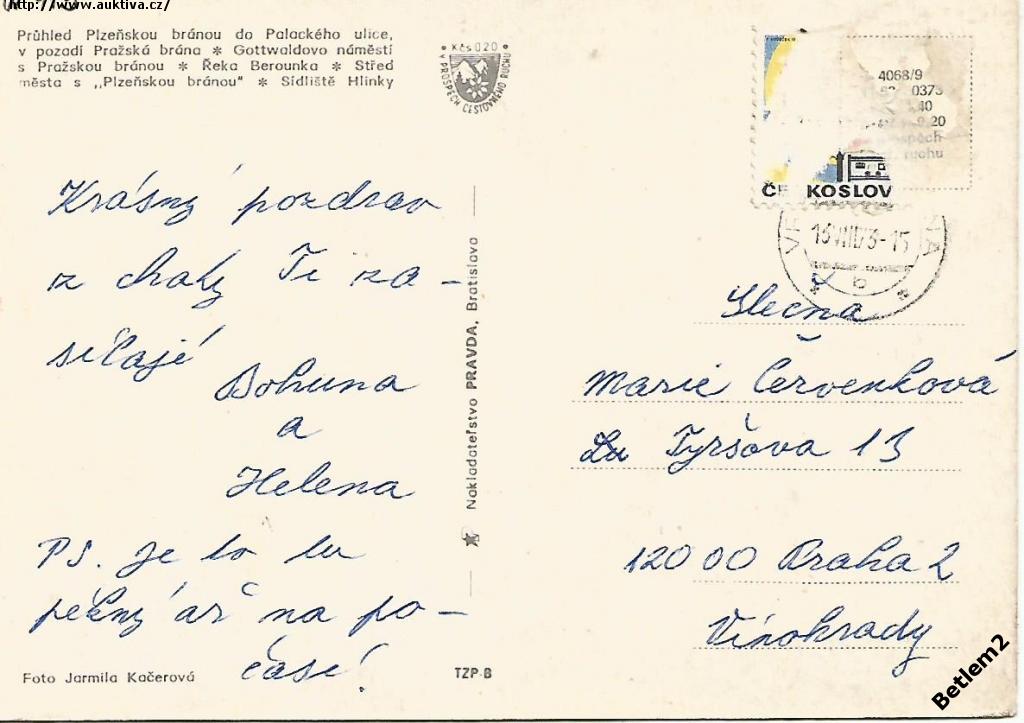 http://www.auktiva.cz/
Průhled Plzeňskou bránou do Palackého ulice,
v pozadí Pražská brána * Gottwaldovo náměstí
s Pražskou bránou * Řeka Berounka * Střed
města s ,,Plzeňskou bránou" * Sídliště Hlinky
• Kčs 0,20 •
V PROSPĚCH CESTOVNÉHO RUCHU
4068/9
0373
40
20
ruchu
KOSLOV
13.VIII.73-15
b
Krásný pozdrav
z chaty Ti za-
sílají
Bohuna
a
Helena
PS. Je to tu
pěkný až na po-
časí!
Nakladateľstvo PRAVDA, Bratislava
Slečna
Marie Červenková
Tyršova 13
120 00 Praha 2
Vinohrady
Foto Jarmila Kačerová
TZP-B
Betlem2